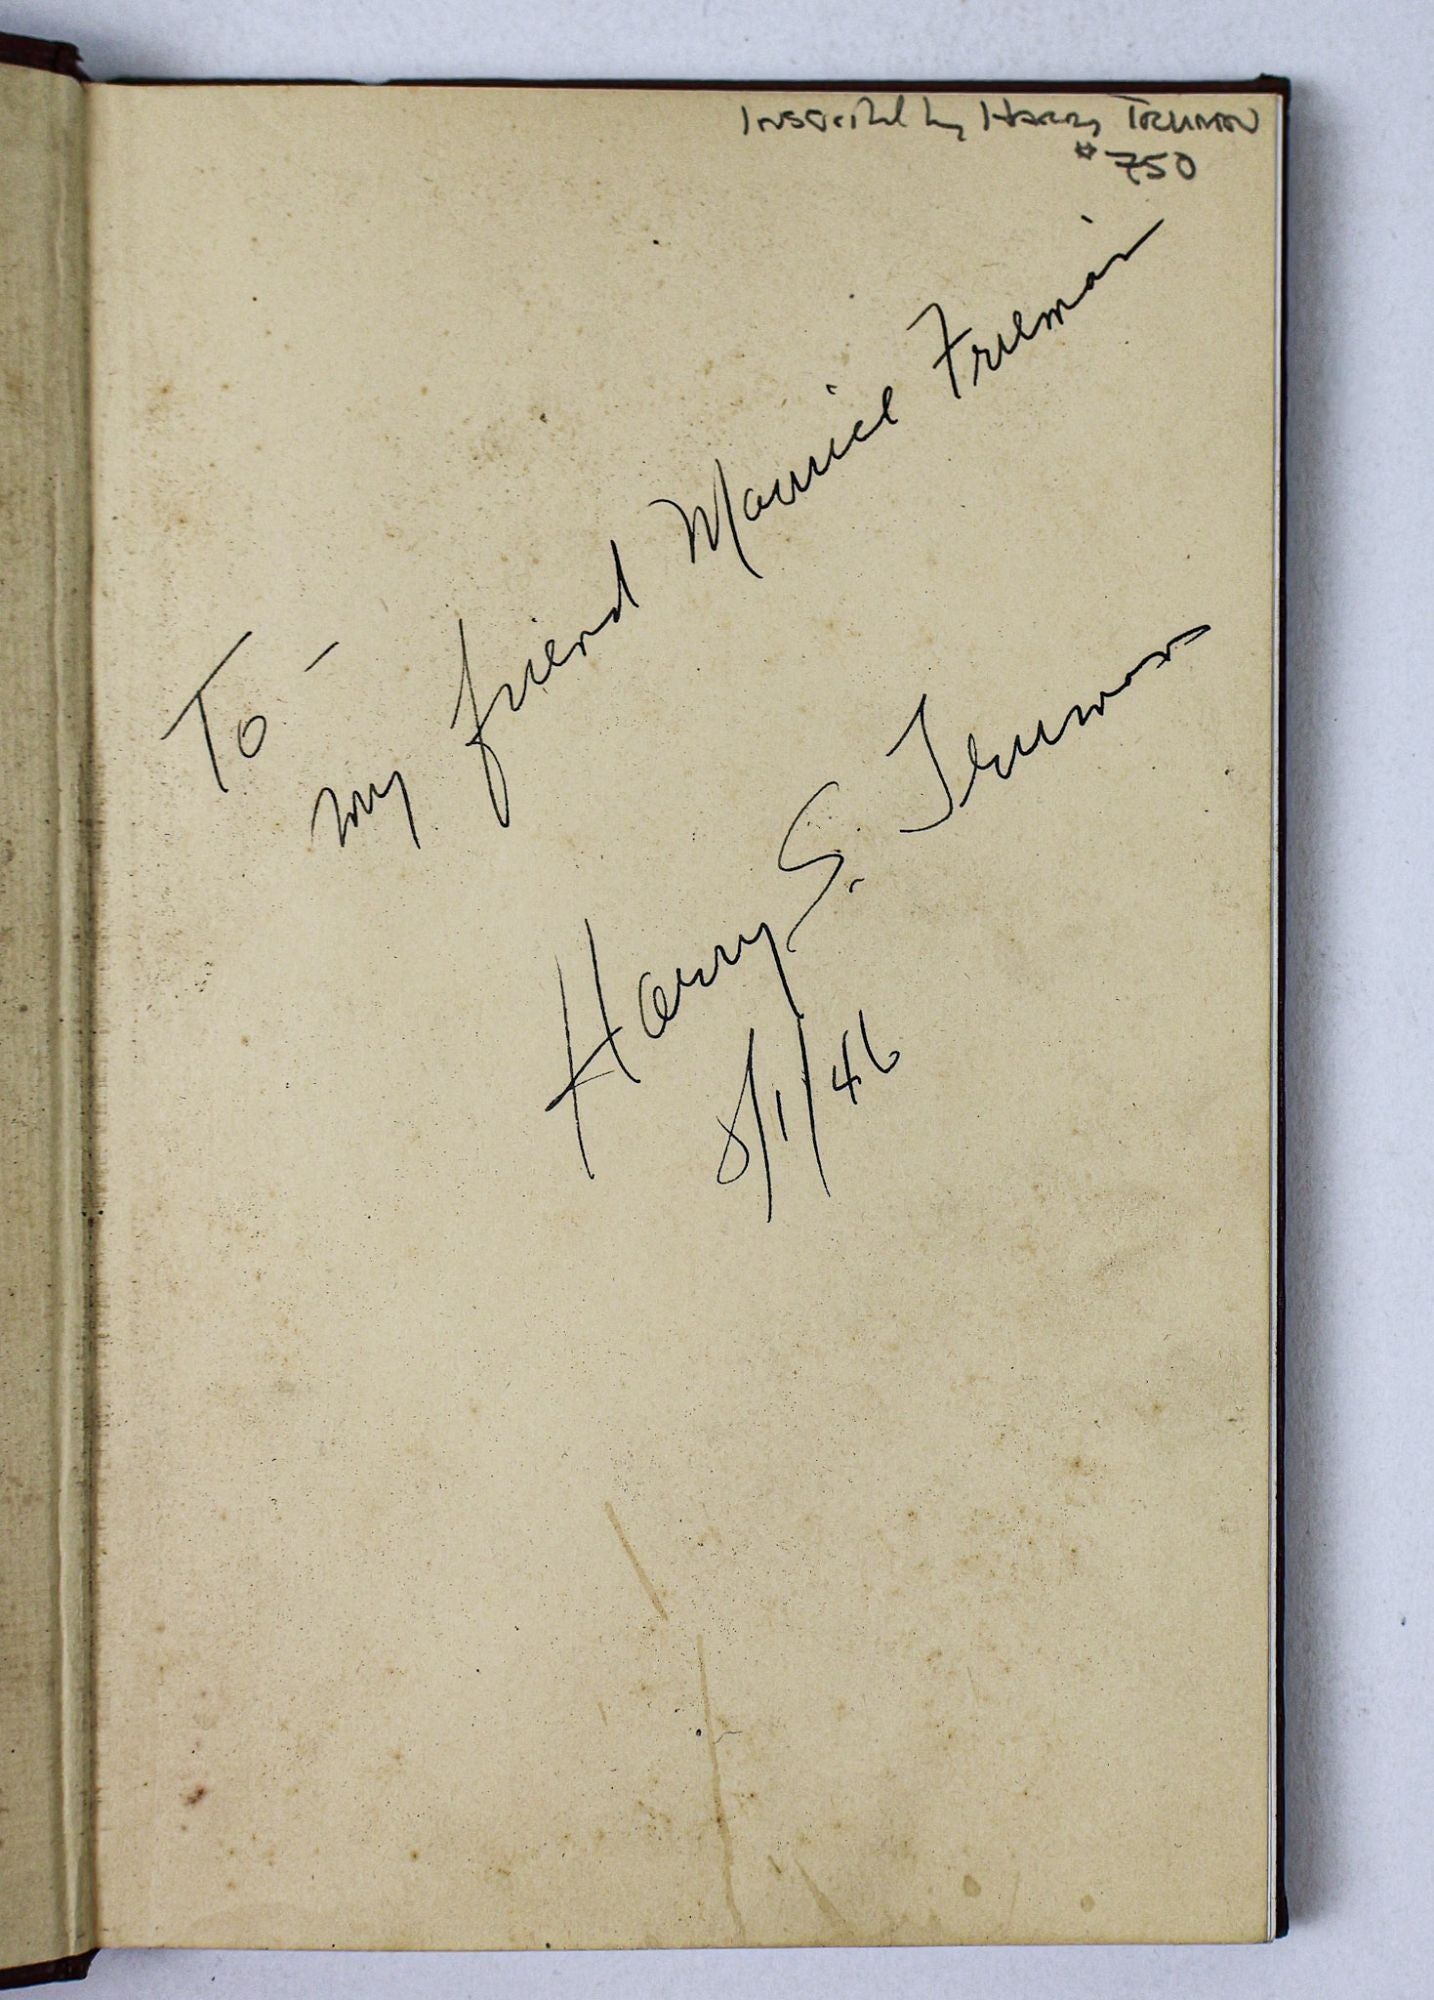 Inscribed by Harry Truman
#750
To -
my friend Maurice Frieman
Harry S. Truman
8/1/46